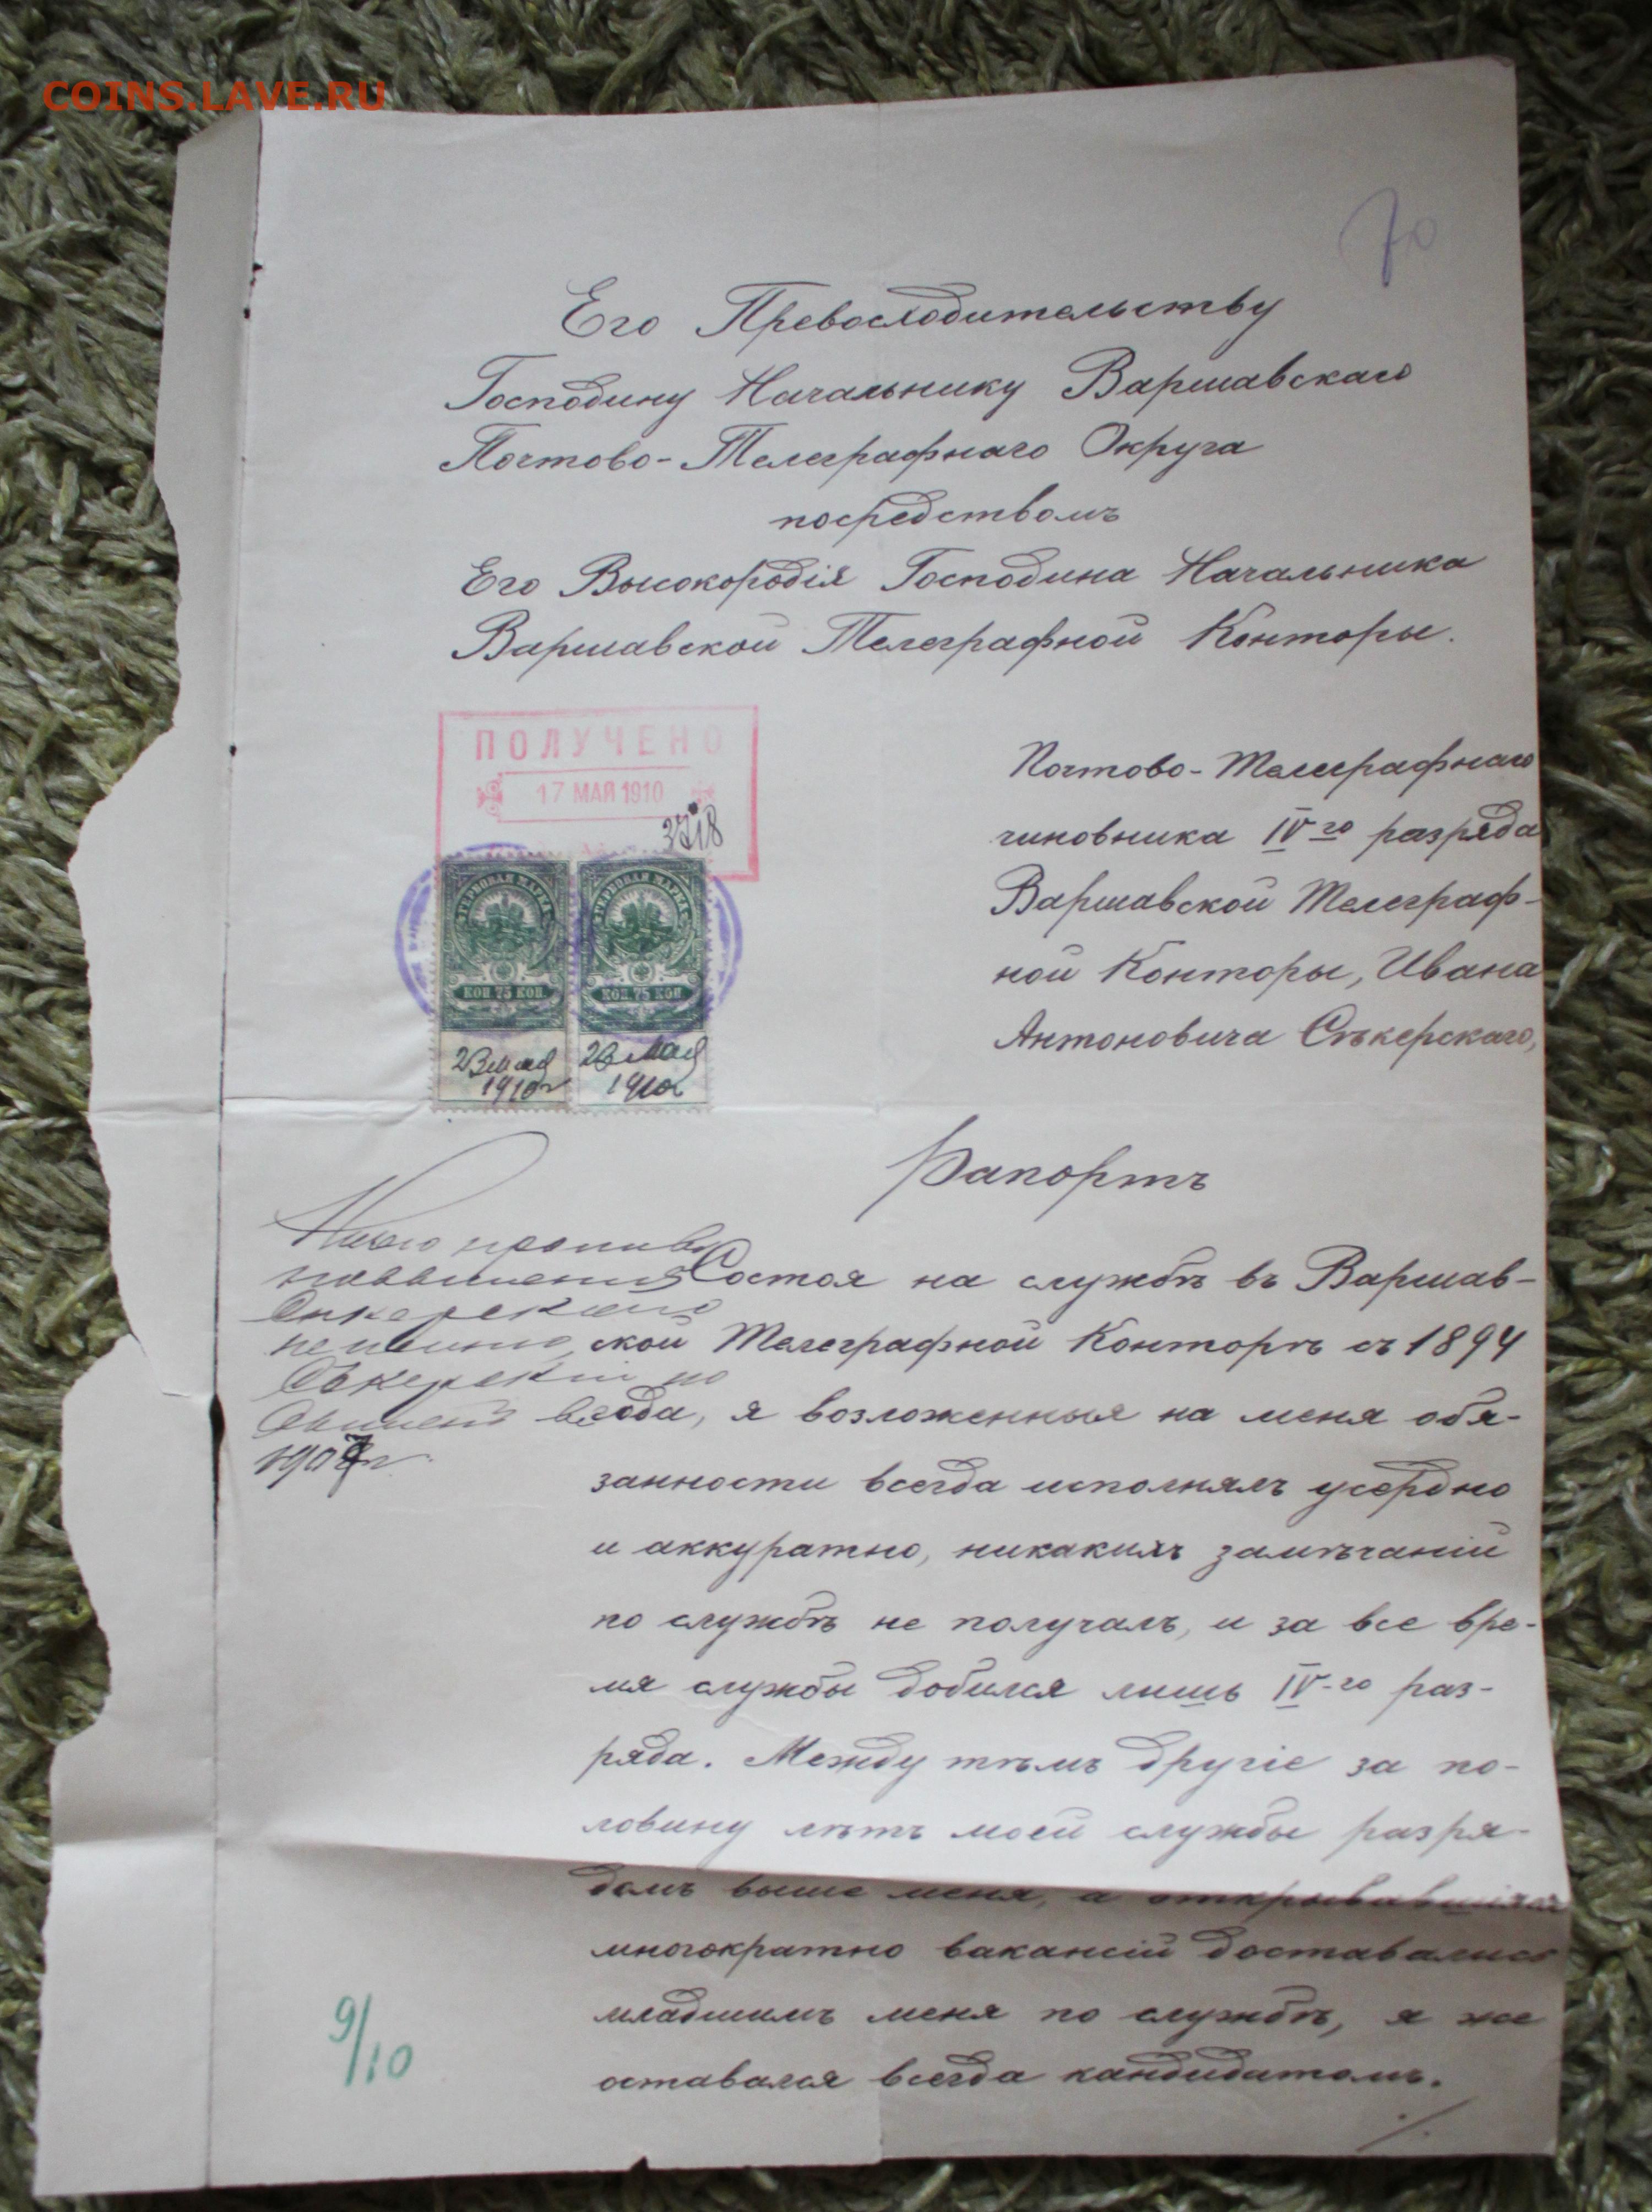 COINS.LAVE.RU
70
Его Превосходительству
Господину Начальнику Варшавскаго
Почтово-Телеграфнаго Округа
посредствомъ
Его Высокородія Господина Начальника
Варшавской Телеграфной Конторы.
ПОЛУЧЕНО
17 МАЯ 1910
3718
ГЕРБОВАЯ МАРКА
ГЕРБОВАЯ МАРКА
КОП. 75 КОП.
КОП. 75 КОП.
мая 1910 г
мая 1910
Почтово-Телеграфнаго
чиновника IV го разряда
Варшавской Телеграф-
ной Конторы, Ивана
Антоновича Сѣкерскаго,
Рапортъ
Состоя на службѣ въ Варшав-
ской Телеграфной Конторѣ съ 1894
года, я возложенныя на меня обя-
занности всегда исполнялъ усердно
и аккуратно, никакихъ замѣчаній
по службѣ не получалъ, и за все вре-
мя службы добился лишь IV-го раз-
ряда. Между тѣмъ другіе за по-
ловину лѣтъ моей службы разря-
домъ выше меня, а открывавшіяся
многократно вакансіи доставались
младшимъ меня по службѣ, я же
оставался всегда кандидатомъ.
9/10